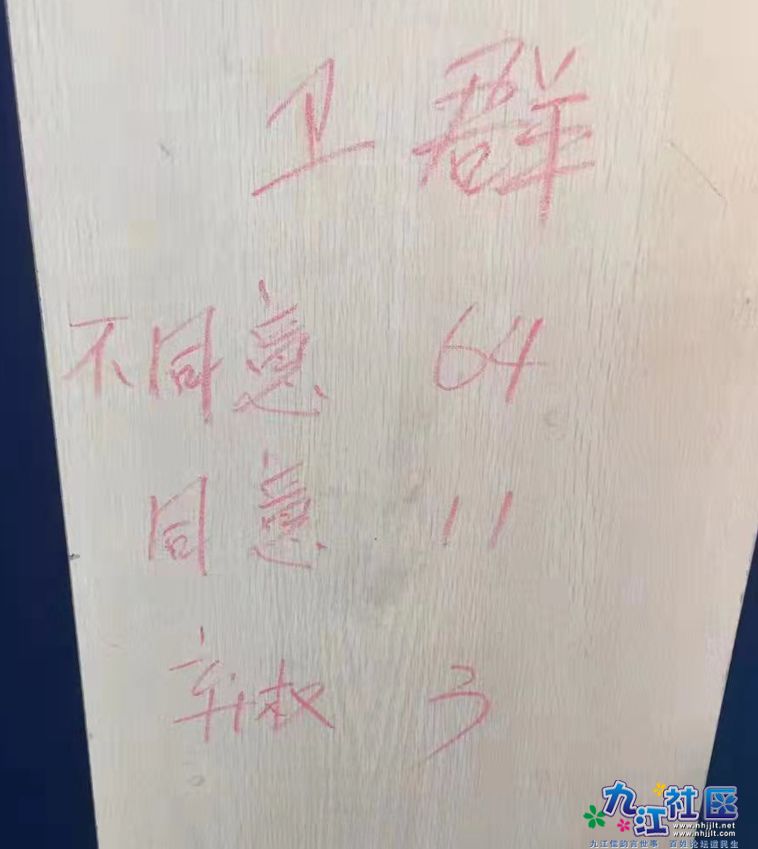 卫群
不同意 64
同意 11
弃权 3
九江社区
www.nhjjlt.net
www.nhjjlt.com
九江儒韵言世事 百姓论坛道民生